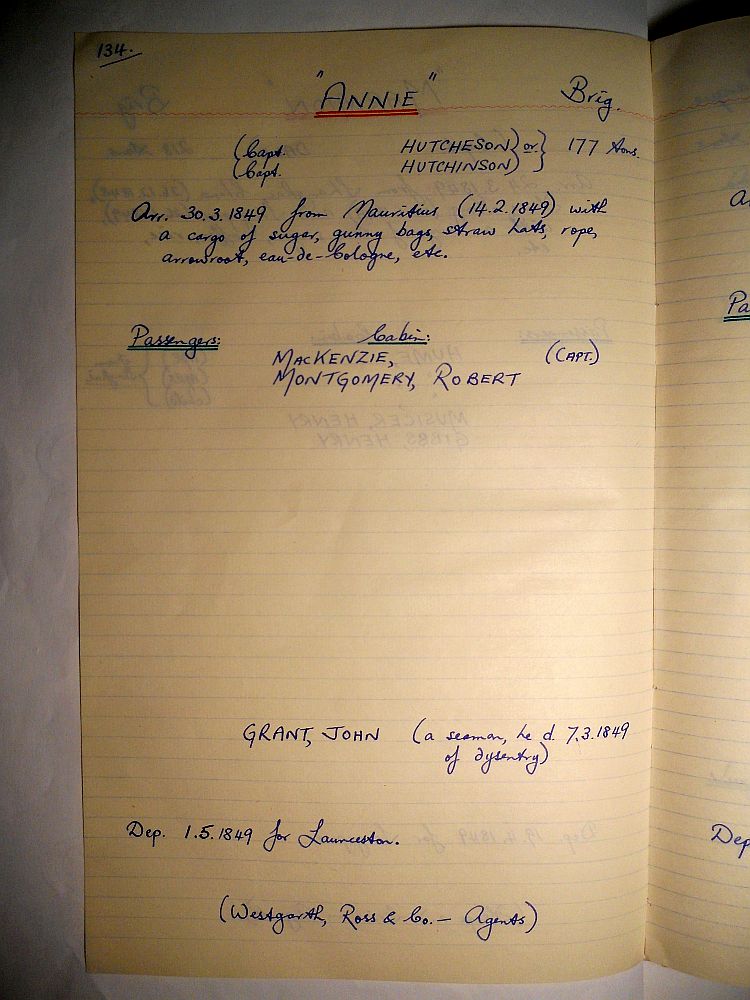 134.
"ANNIE" Brig.
(Capt. HUTCHESON) or } 177 tons.
(Capt. HUTCHINSON) }
Arr. 30.3.1849 from Mauritius (14.2.1849) with
a cargo of sugar, gunny bags, straw hats, rope,
arrowroot, eau-de-Cologne, etc.
Passengers: Cabin:
MACKENZIE, (CAPT.)
MONTGOMERY, ROBERT
GRANT, JOHN (a seaman, he d. 7.3.1849
of dysentry)
Dep. 1.5.1849 for Launceston.
(Westgarth, Ross & Co. — Agents)
Pa
Dep